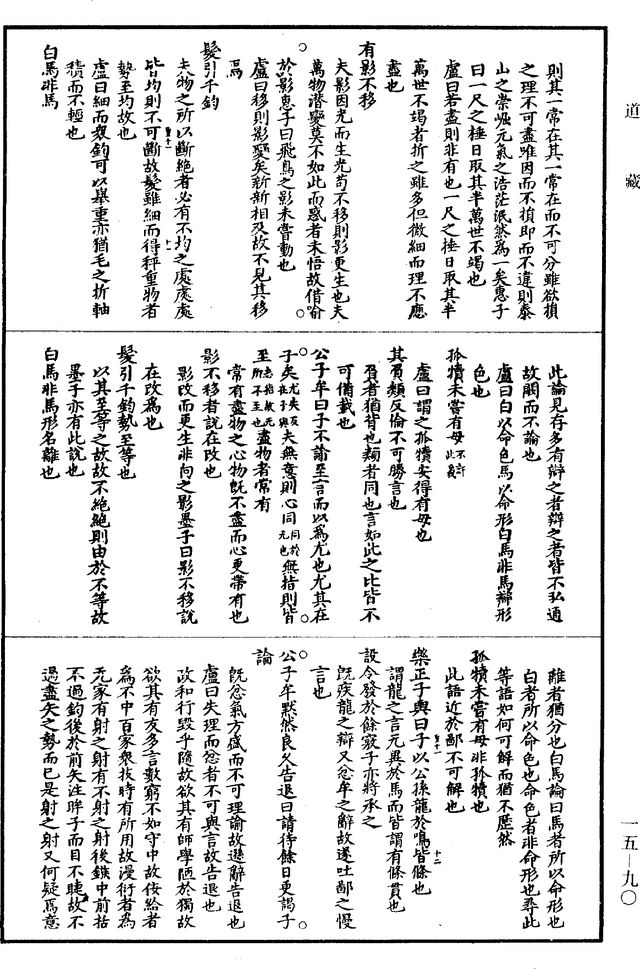 道藏
則其一常在其一常在而不可分雖欲損
之理不可盡唯因而不損即而不違則泰
山之崇崛元氣之浩茫泯然為一矣惠子
曰一尺之棰日取其半萬世不竭也
盧曰若盡則非有也一尺之棰日取其半
萬世不竭者折之雖多但微細而理不應
盡也
有影不移
夫影因光而生光苟不移則影更生也夫
萬物潛變莫不如此而惑者未悟故借喻
於影惠子曰飛鳥之影未嘗動也
盧曰移則影變矣新新相及故不見其移
焉
髮引千鈞
夫物之所以斷絕者必有不均之處處處
皆均則不可斷故髮雖細而得秤重物者
勢至均故也
盧曰細而衆鈞可以舉重亦猶毛之折軸
積而不輕也
白馬非馬
此論見存多有辯之者辯之者皆不弘通
故闕而不論也
盧曰白以命色馬以命形白馬非馬辯形
色也
孤犢未嘗有母不詳此義
盧曰謂之孤犢安得有母也
其負類反倫不可勝言也
負者猶背也類者同也言如此之比皆不
可備載也
公子牟曰子不諭至言而以為尤也尤其在
子矣尤失反在子與夫無意則心同同於无也無指則皆
至忘指故无所不至也盡物者常有
常有盡物之心物既不盡而心更帶有也
影不移者說在改也
影改而更生非向之影墨子曰影不移說
在改為也
髮引千鈞勢至等也
以其至等之故故不絕絕則由於不等故
墨子亦有此說也
白馬非馬形名離也
離者猶分也白馬論曰馬者所以命形也
白者所以命色也命色者非命形也尋此
等語如何可解而猶不歷然
孤犢未嘗有母非孤犢也
此語近於鄙不可解也
樂正子輿曰子以公孫龍於鳴皆條也
謂龍之言无異於馬而皆謂有條貫也
設令發於餘竅子亦將承之
既疾龍之辯又忿牟之辭故遂吐鄙之慢
言也
公子牟默然良久告退曰請待餘日更謁子
論
既忿氣方盛而不可理諭故遜辭告退也
盧曰失理而忿者不可與言故告退也
政和行毀乎隨故欲其有師學陋於獨故
欲其有友多言數窮不如守中故佞給者
為不中百家衆技時有所用故漫衍者為
无家有射之射有不射之射後鏃中前括
不過鈞後於前矢注眸子而目不睫故不
過盡矢之勢而已是射之射又何疑焉意
一五—九〇